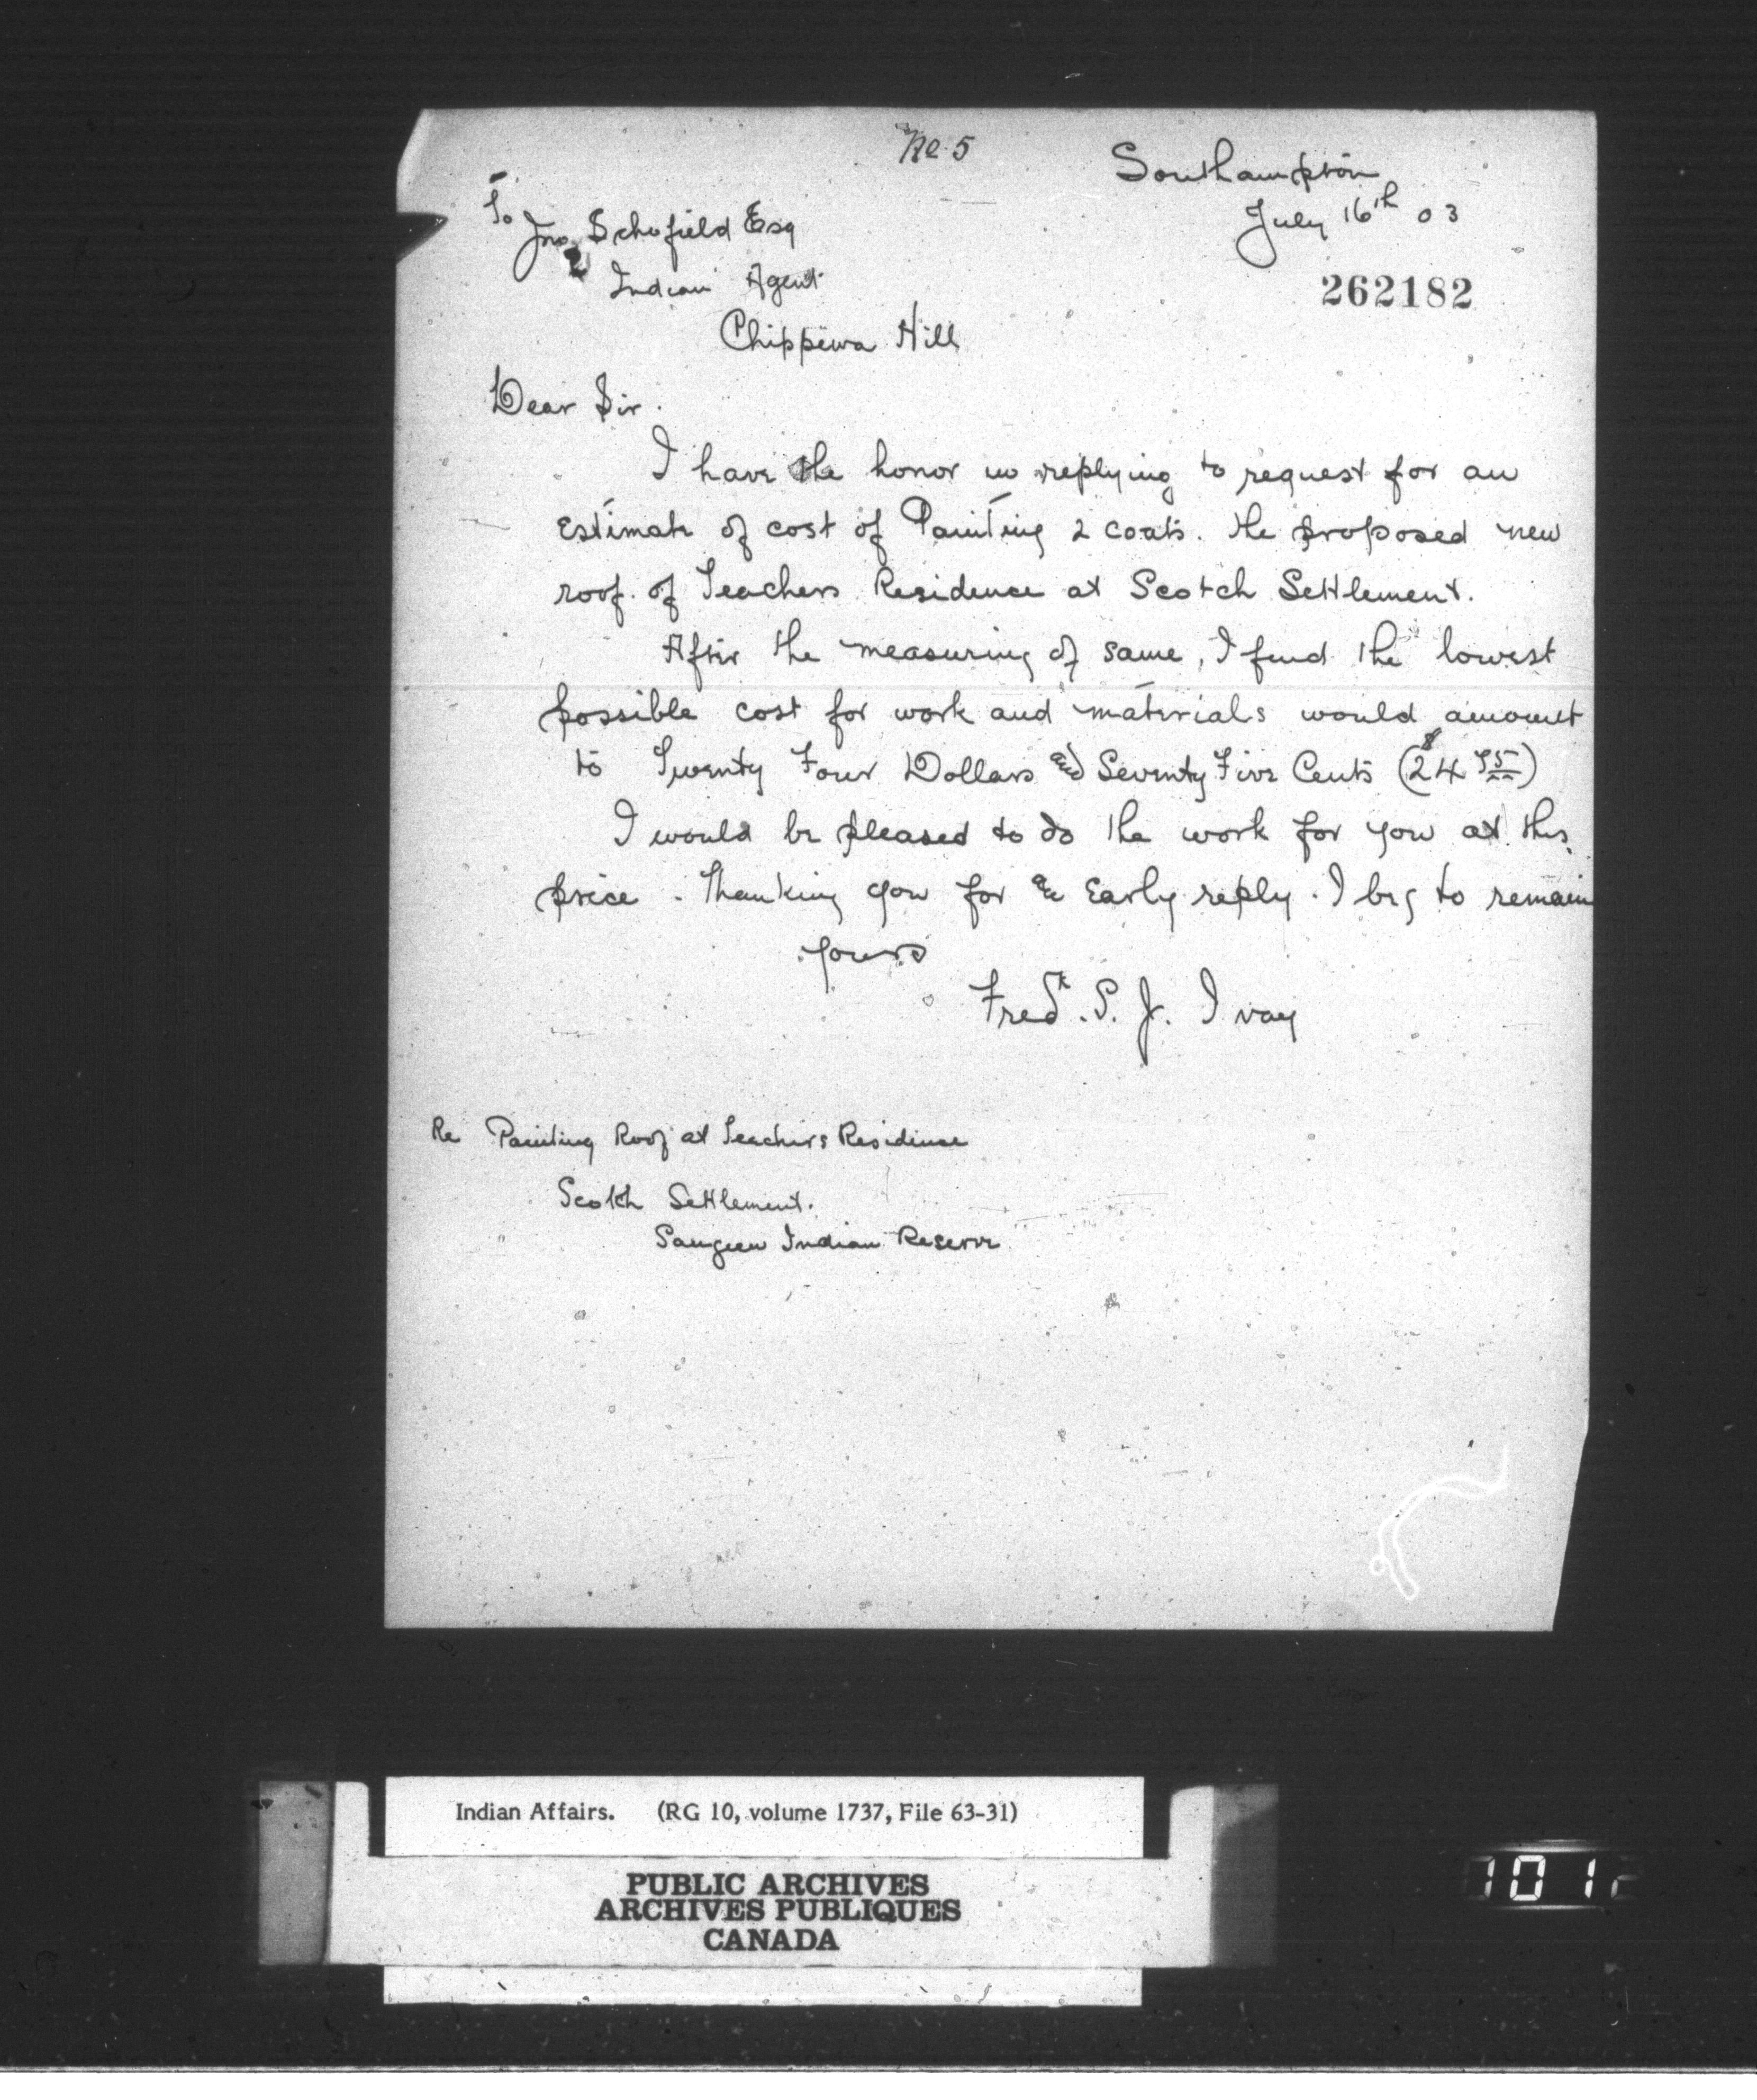 No 5
Southampton
July 16th 03
To
Jno Schofield Esq
262182
Indian Agent
Chippewa Hill
Dear Sir.
I have the honor in replying to request for an
Estimate of cost of Painting 2 coats. the proposed new
roof. of Teachers Residence at Scotch Settlement.
After the measuring of same, I find the lowest
possible cost for work and materials would amount
to Twenty Four Dollars and Seventy Five Cents ($24 75)
I would be pleased to do the work for you at this
price. Thanking you for an Early reply. I beg to remain
yours
Fredk. S. J. Ivay
Re Painting Roof at Teachers Residence
Scotch Settlement.
Saugeen Indian Reserve
Indian Affairs. (RG 10, volume 1737, File 63-31)
PUBLIC ARCHIVES
ARCHIVES PUBLIQUES
CANADA
1012